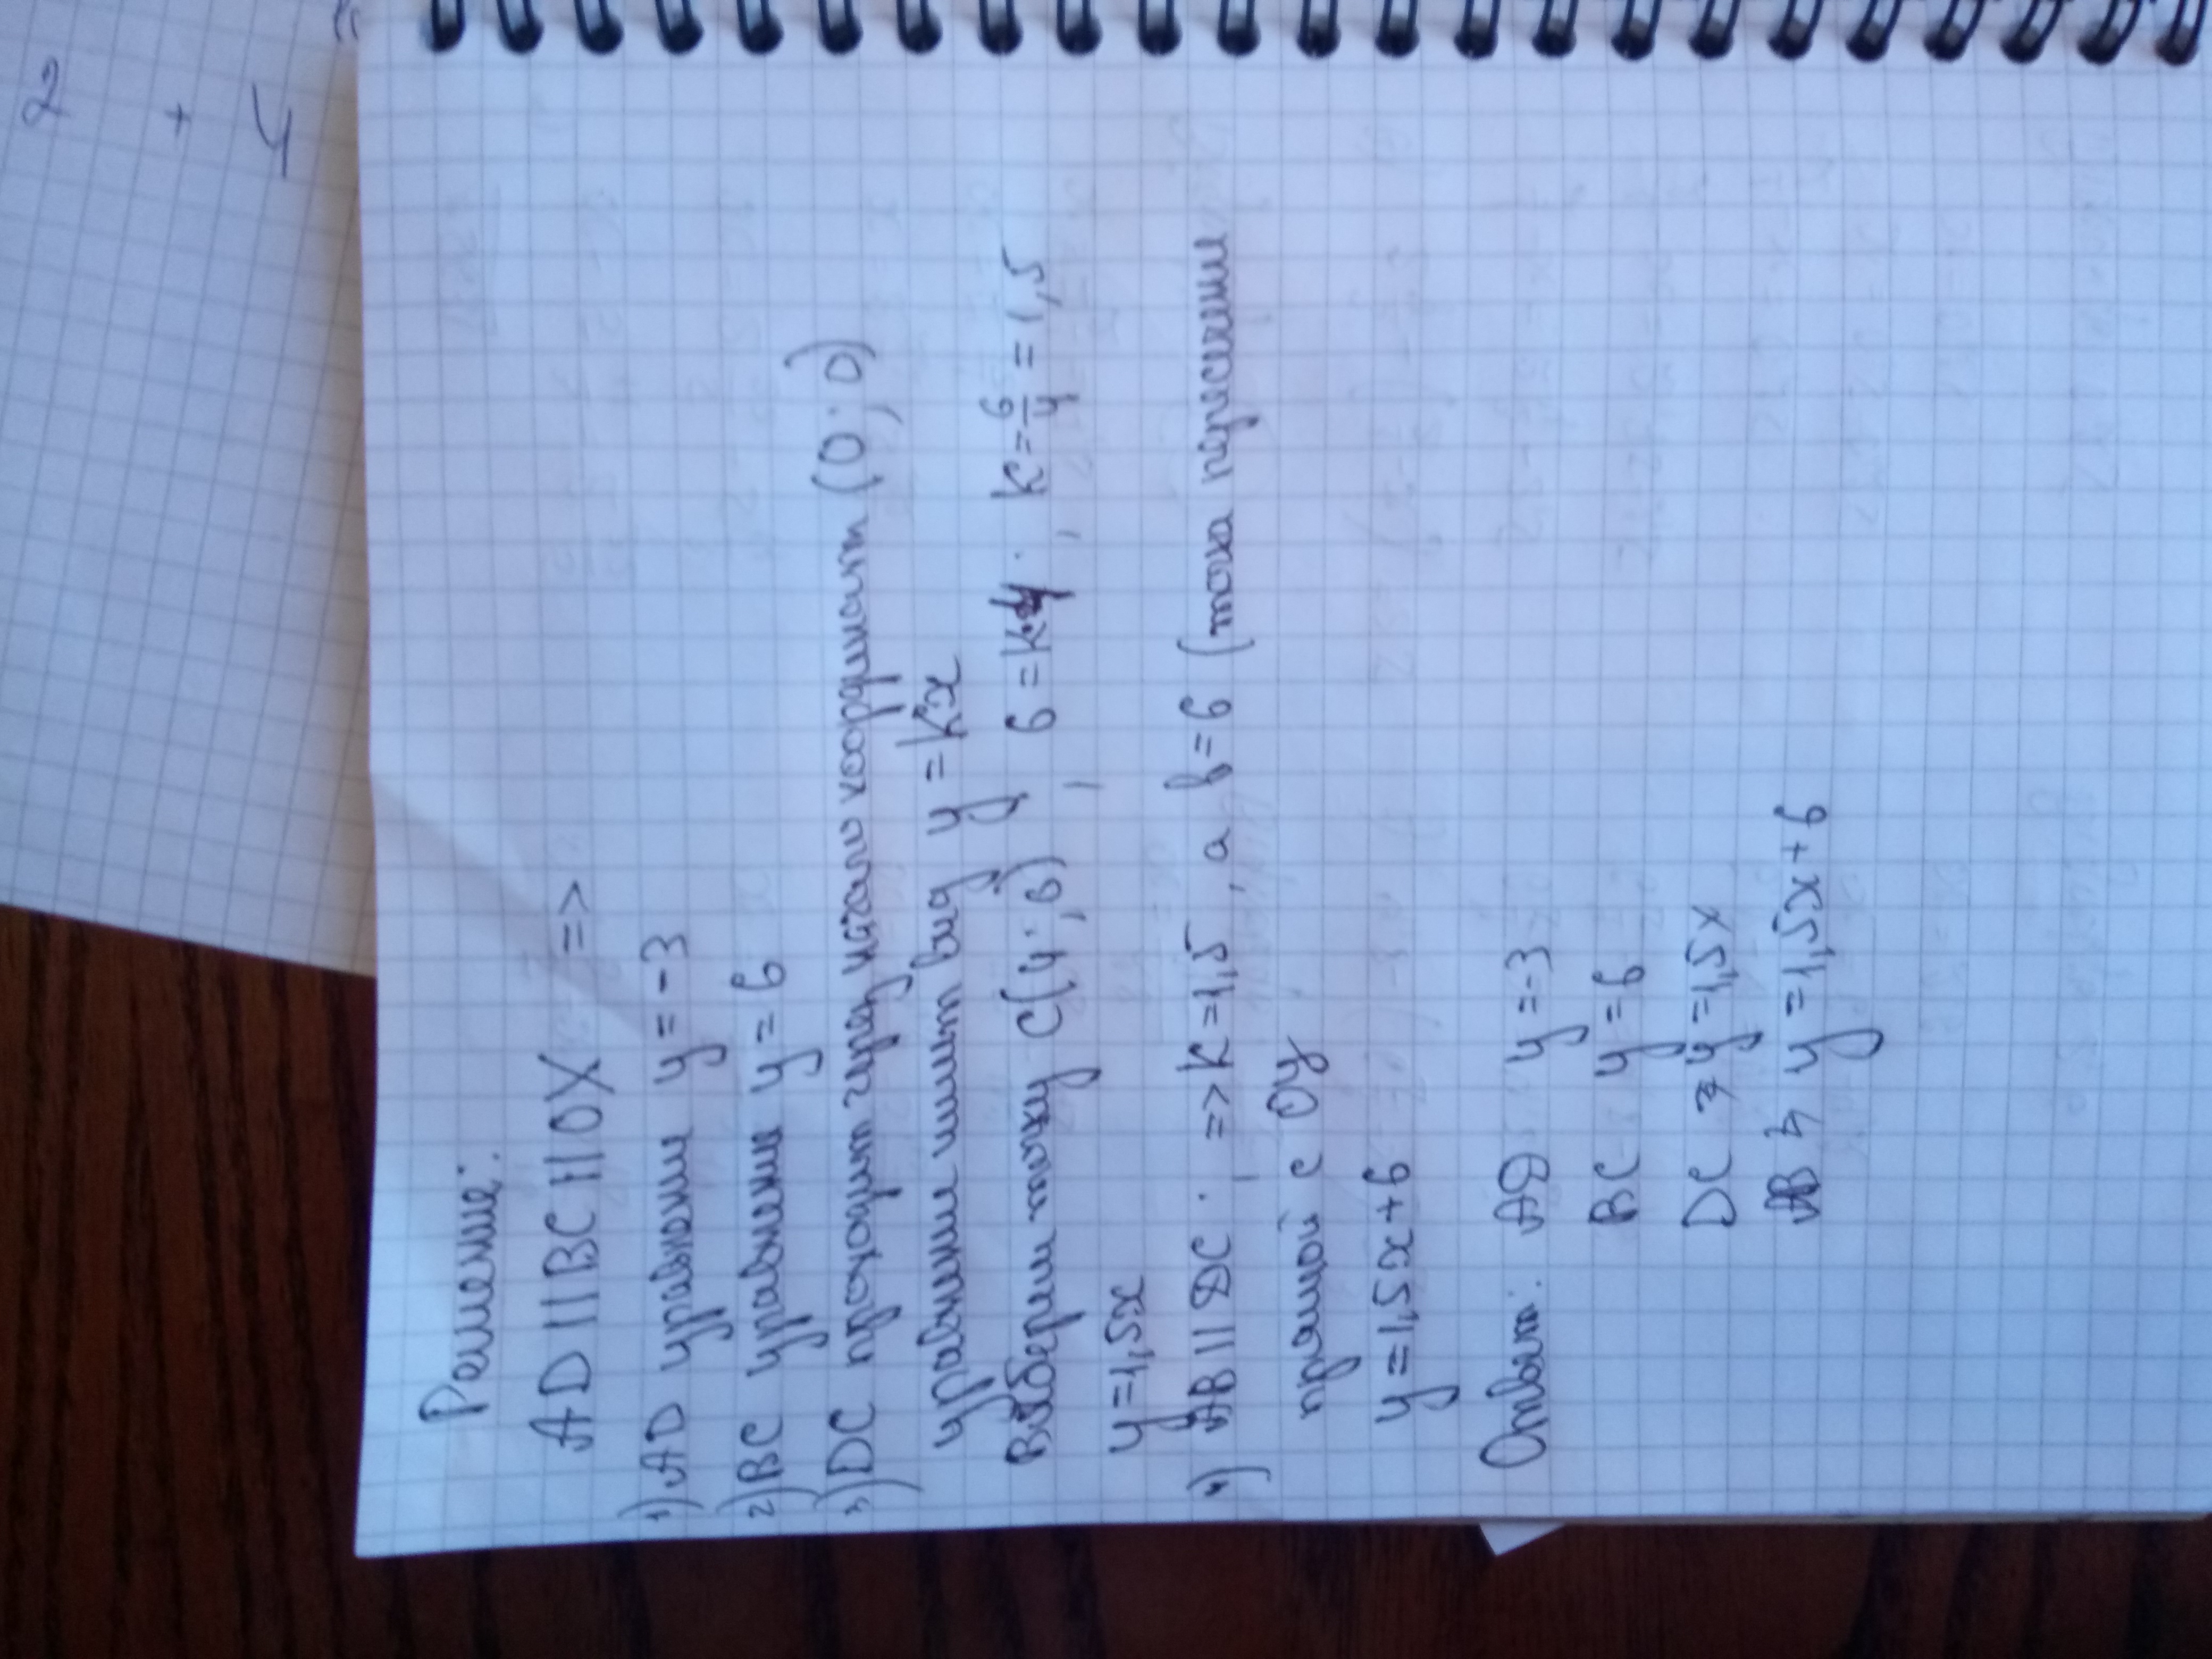 2 + 4 =
Решение:
AD || BC || OX =>
1) AD уравнение y = -3
2) BC уравнение y = 6
3) DC проходит через начало координат (0; 0)
уравнение имеет вид y = kx
Выберем точку C(4; 6), 6 = k·4; k = 6/4 = 1,5
y = 1,5x
4) AB || DC; => k = 1,5, а b = 6 (точка пересечения
прямой с Oy
y = 1,5x + 6
Ответ: AD y = -3
BC y = 6
DC y = 1,5x
AB y = 1,5x + 6